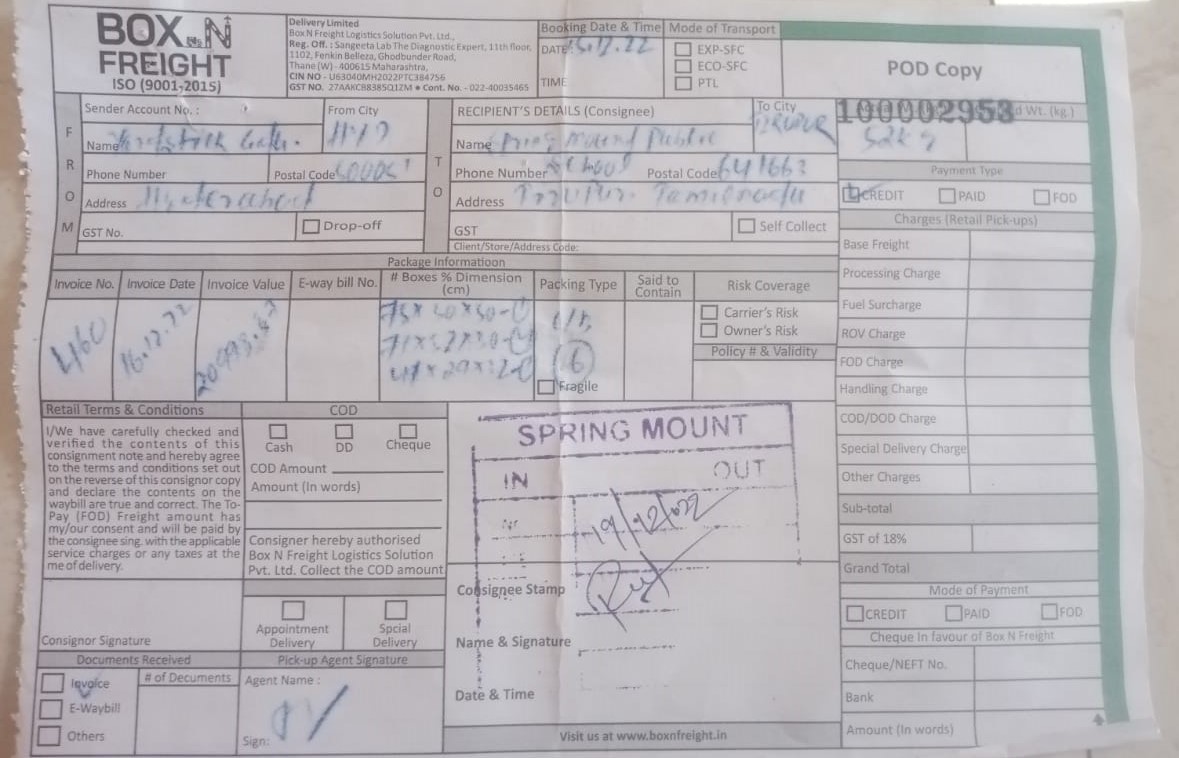 BOX N FREIGHT
ISO (9001-2015)
Delivery Limited
Box N Freight Logistics Solution Pvt. Ltd.,
Reg. Off. : Sangeeta Lab The Diagnostic Expert, 11th floor,
1102, Fenkin Belleza, Ghodbunder Road,
Thane (W) - 400615 Maharashtra,
CIN NO - U63040MH2022PTC384756
GST NO. 27AAKCB8385Q1ZM • Cont. No. - 022-40035465
Booking Date & Time
DATE 15.12.22
TIME
Mode of Transport
EXP-SFC
ECO-SFC
PTL
POD Copy
100002953
d Wt. (kg)
52kg
FROM
Sender Account No. :
From City
HYD
Name
Phone Number
Postal Code
Address Hyderabad
GST No.
Drop-off
TO
RECIPIENT'S DETAILS (Consignee)
To City
Name Spring mound Public
Phone Number School
Postal Code 641663
Address Tamilnadu
GST
Self Collect
Client/Store/Address Code:
Payment Type
CREDIT
PAID
FOD
Charges (Retail Pick-ups)
Base Freight
Processing Charge
Fuel Surcharge
ROV Charge
FOD Charge
Handling Charge
COD/DOD Charge
Special Delivery Charge
Other Charges
Sub-total
GST of 18%
Grand Total
Package Informatioon
Invoice No.
Invoice Date
Invoice Value
E-way bill No.
# Boxes % Dimension (cm)
Packing Type
Said to Contain
Risk Coverage
16.12.22
(6)
Fragile
Carrier's Risk
Owner's Risk
Policy # & Validity
Retail Terms & Conditions
I/We have carefully checked and
verified the contents of this
consignment note and hereby agree
to the terms and conditions set out
on the reverse of this consignor copy
and declare the contents on the
waybill are true and correct. The To-
Pay (FOD) Freight amount has
my/our consent and will be paid by
the consignee sing. with the applicable
service charges or any taxes at the
me of delivery.
Consignor Signature
COD
Cash
DD
Cheque
COD Amount
Amount (In words)
Consigner hereby authorised
Box N Freight Logistics Solution
Pvt. Ltd. Collect the COD amount
Appointment Delivery
Spcial Delivery
SPRING MOUNT
IN
OUT
19/12/022
Consignee Stamp
Name & Signature
Date & Time
Documents Received
Invoice
E-Waybill
Others
# of Documents
Pick-up Agent Signature
Agent Name :
Sign:
Visit us at www.boxnfreight.in
Mode of Payment
CREDIT
PAID
FOD
Cheque In favour of Box N Freight
Cheque/NEFT No.
Bank
Amount (In words)